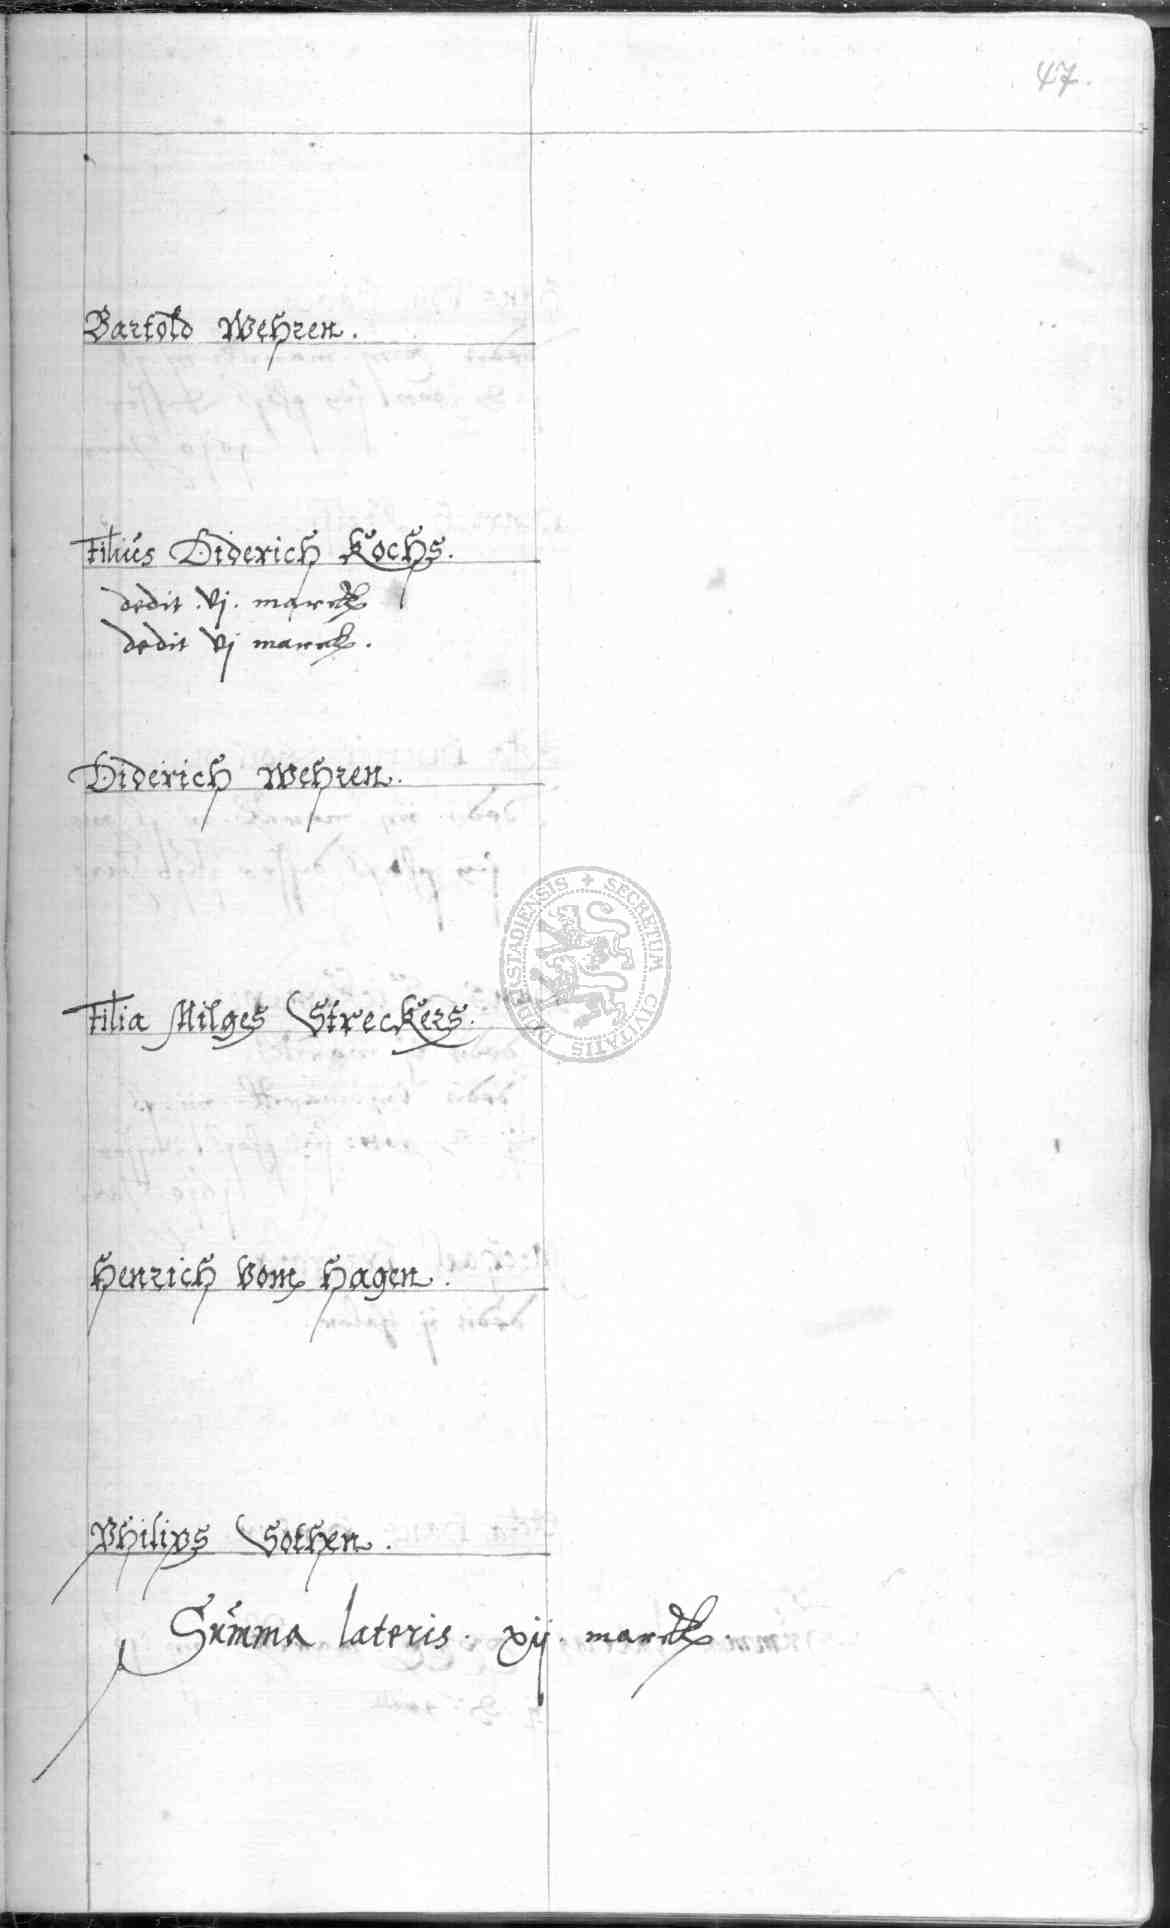 47.
Bartold Wehren.
Filius Diderich Kochs.
dedit .vj. marck
dedit vj marck.
Diderich Wehren.
Filia Milges Streckers.
Henrich Vom Hagen.
Philips Sothen.
Summa lateris. xij. marck.
SECRETUM CIVITATIS DUDERSTADIENSIS